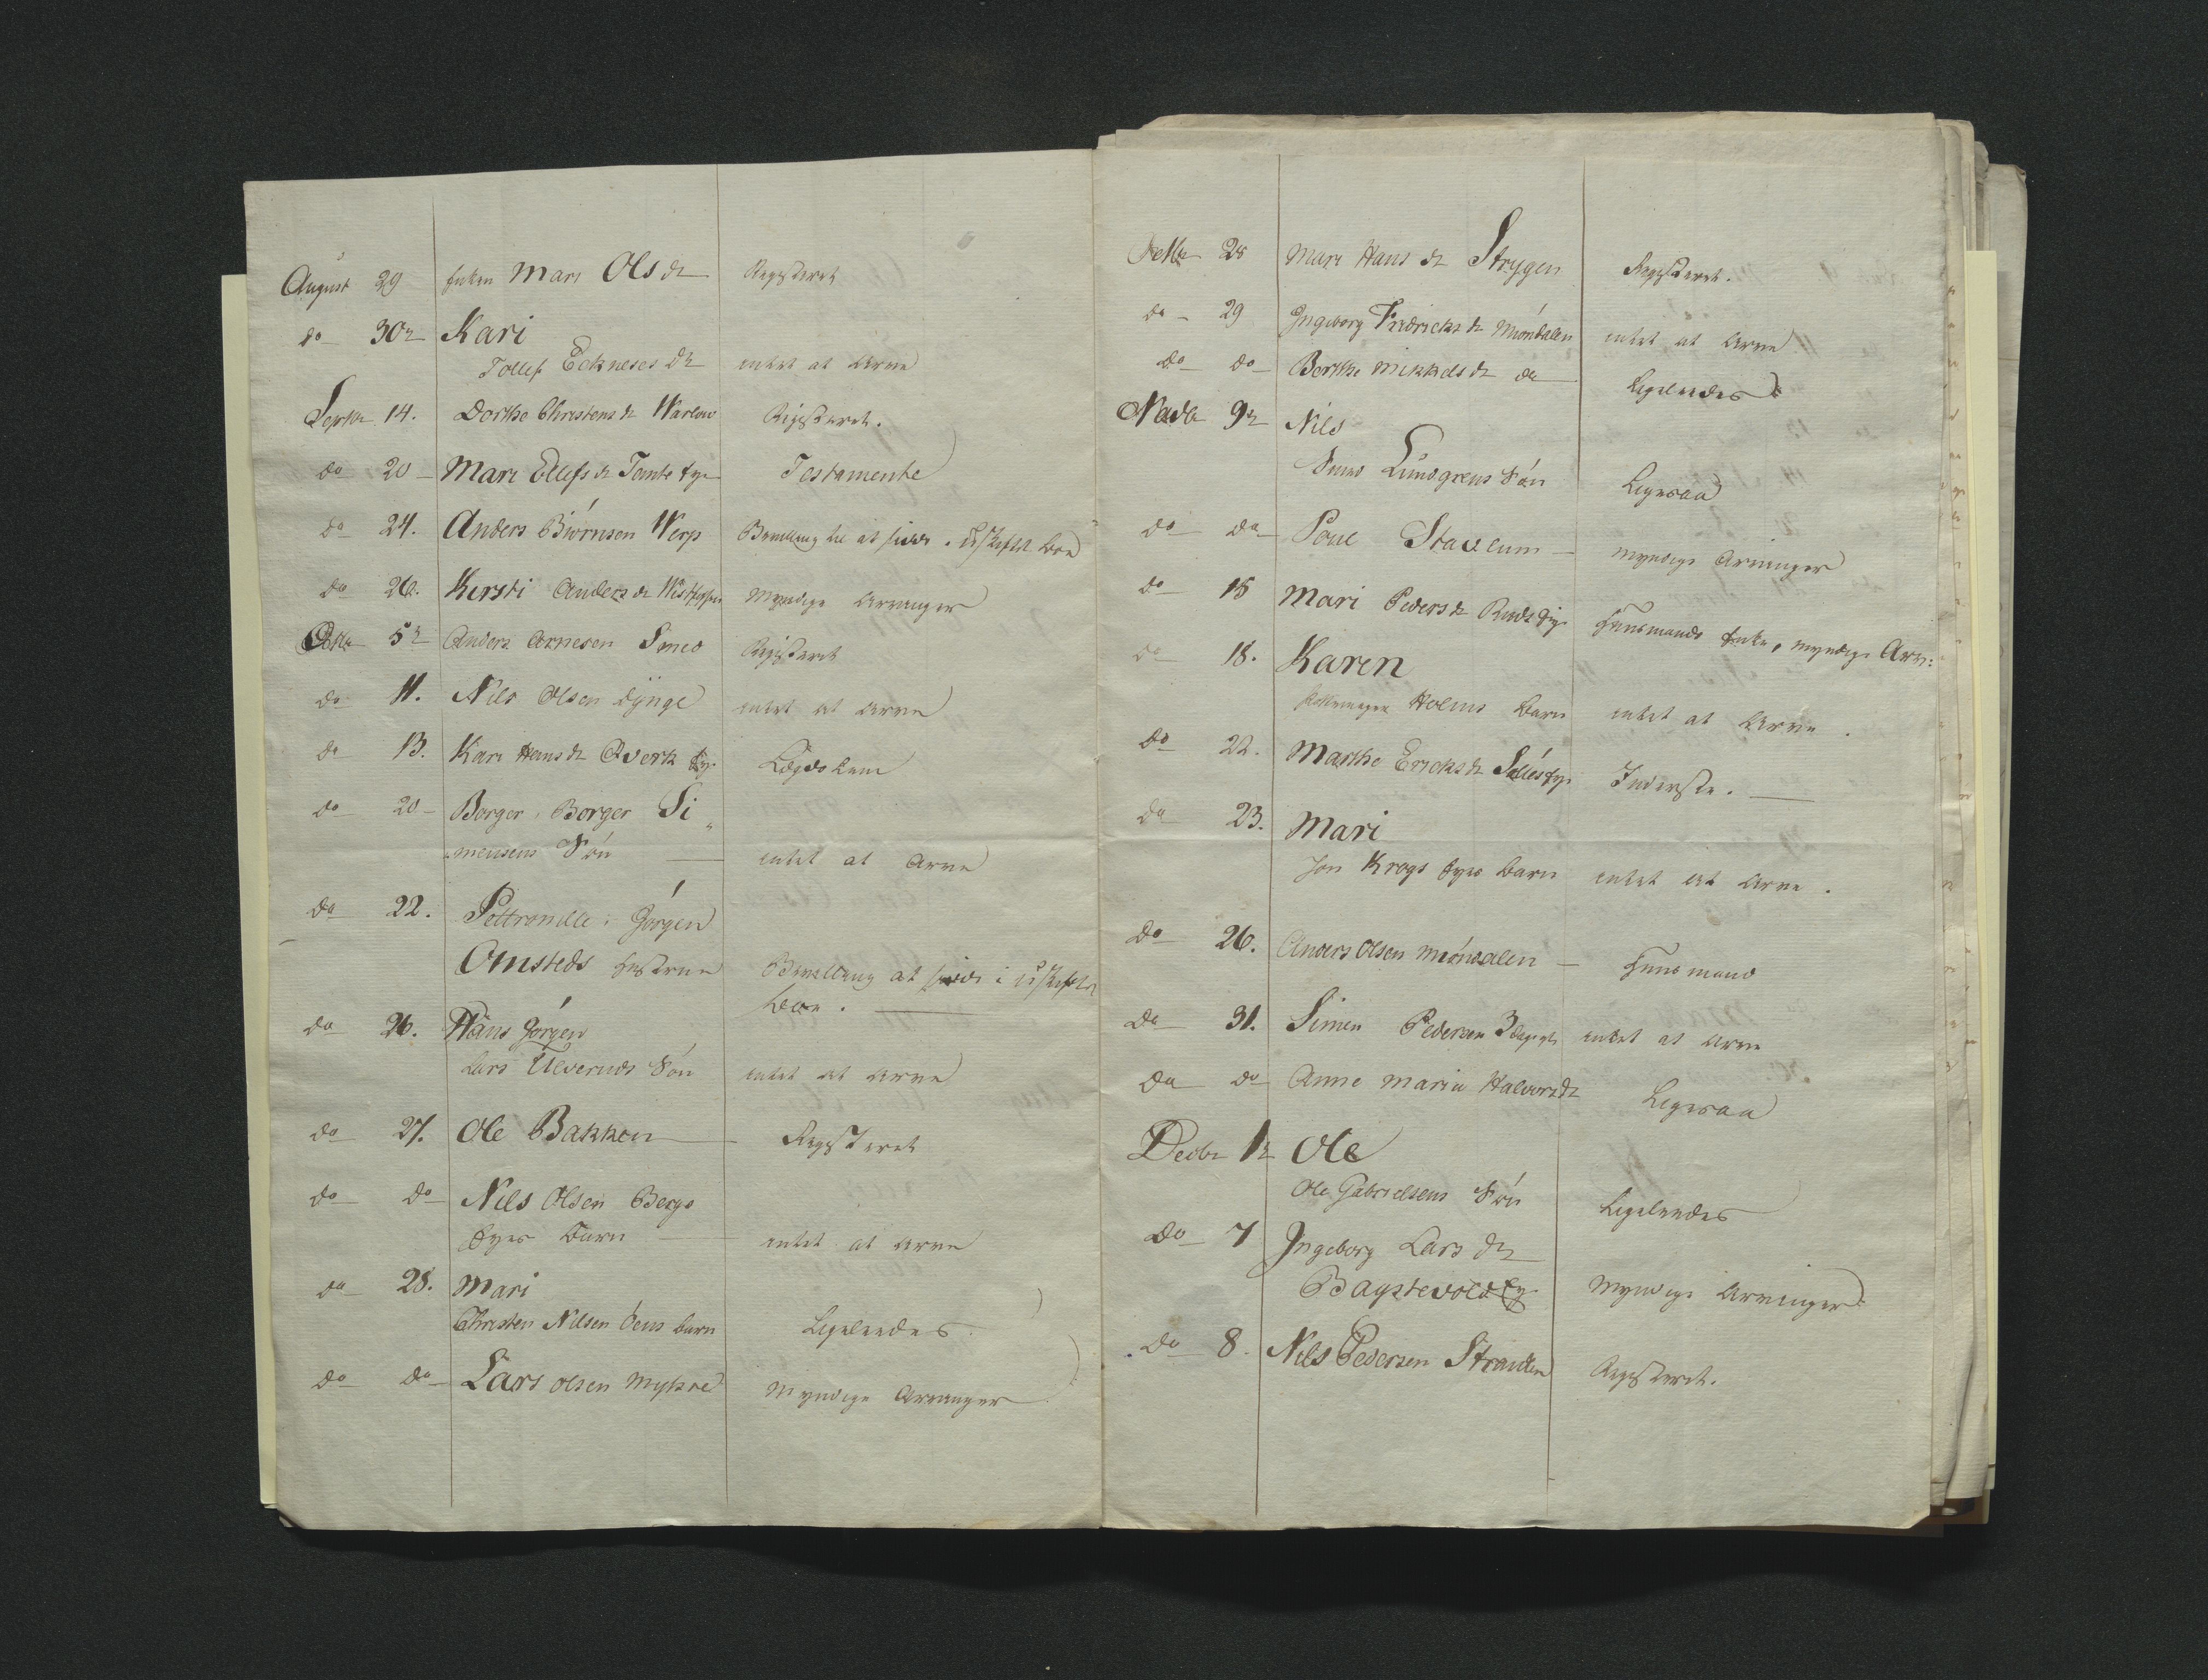 August 29 Enken Mari Ols dr Registeret
do 30te Kari
Tollef Eekneses dr intet at Arve
Septbr 14. Dorthe Christens dr Warlow Registeret.
do 20 Mari Ellefs dr Tomte Eye Testamente
do 24. Anders Biørnsen Werp Bevilling til at sidde i uskiftet Boe
do 26. Kersti Anders dr myndige Arvinger
Octbr 5te Anders Arnesen Smed Registeret
do 11. Nils Olsen Dynge intet at Arve
do 13. Kari Hans dr Qverk Ey. Lægdslem
do 20 Borger, Borger Si
mensens Søn intet at Arve
do 22. Pettronille Jørgen
Omsteds Hustrue Bevilling at sidde i uskiftet
Boe.
do 26. Hans Jørgen
Lars Ulveruds Søn intet at Arve
do 27. Ole Bakken Registeret
do do Nils Olsen Bergs
Eyes Barn intet at Arve
do 28. Mari
Christen Nilsen Bens barn Ligeledes
do do Lars Olsen Myhre Myndige Arvinger
Octbr 28 Mari Hans dr Strygen Registeret.
do 29 Ingeborg Fredricks dr Miøndalen intet at Arve
do do Berthe Mikkels dr do Ligeledes
Novbr 9te Nils
Lundgrens Søn Ligesaa
do do Poul Stavlum myndige Arvinger
do 15 Mari Peders dr Ruds Eye Huusmands Enke, myndige Arv:
do 18. Karen
Holms Barn intet at Arve.
do 22. Marthe Ericks dr Inderste.
do 23. Mari
Jon Krogs Eyes Barn intet at Arve.
do 26. Anders Olsen Miøndalen Huusmand
do 31. Simen Pedersen intet at Arve
do do Anne Maria Halvors dr Ligesaa
Decbr 1te Ole
Ole Gabrielsens Søn Ligeledes
do 7 Ingeborg Lars dr
Bagstevold Ey. Myndige Arvinger
do 8. Nils Pedersen Stranden Registeret.